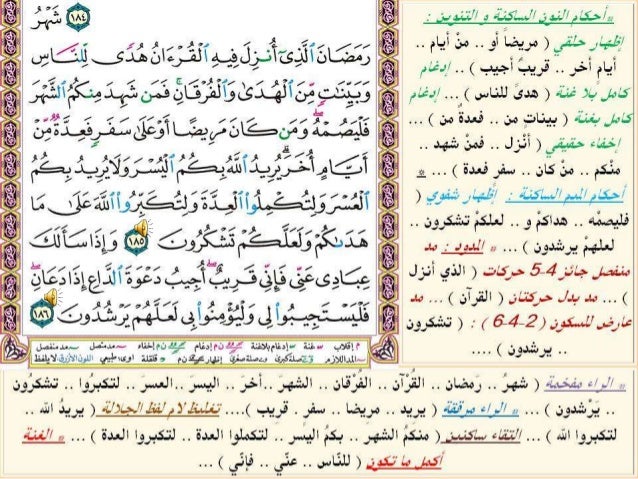 ١٨٤ شَهْرُ
رَمَضَانَ ٱلَّذِىٓ أُنزِلَ فِيهِ ٱلْقُرْءَانُ هُدًى لِّلنَّاسِ
وَبَيِّنَٰتٍ مِّنَ ٱلْهُدَىٰ وَٱلْفُرْقَانِ ۚ فَمَن شَهِدَ مِنكُمُ ٱلشَّهْرَ
فَلْيَصُمْهُ ۖ وَمَن كَانَ مَرِيضًا أَوْ عَلَىٰ سَفَرٍ فَعِدَّةٌ مِّنْ
أَيَّامٍ أُخَرَ ۗ يُرِيدُ ٱللَّهُ بِكُمُ ٱلْيُسْرَ وَلَا يُرِيدُ بِكُمُ
ٱلْعُسْرَ وَلِتُكْمِلُوا۟ ٱلْعِدَّةَ وَلِتُكَبِّرُوا۟ ٱللَّهَ عَلَىٰ مَا
هَدَىٰكُمْ وَلَعَلَّكُمْ تَشْكُرُونَ ١٨٥ وَإِذَا سَأَلَكَ
عِبَادِى عَنِّى فَإِنِّى قَرِيبٌ ۖ أُجِيبُ دَعْوَةَ ٱلدَّاعِ إِذَا دَعَانِ ۖ
فَلْيَسْتَجِيبُوا۟ لِى وَلْيُؤْمِنُوا۟ بِى لَعَلَّهُمْ يَرْشُدُونَ ١٨٦
* أحكام النون الساكنة و التنوين :
إظهار حلقي ( مريضاً أو .. منْ أيام ..
أيام أخر .. قريبٌ أجيب ) .. إدغام
كامل بلا غنة ( هدىً للناس ) ... إدغام
كامل بغنة ( بيناتٍ من .. فعدةٌ من ) ...
إخفاء حقيقي ( أنْزل .. فمنْ شهد ..
منْكم .. منْ كان .. سفر فعدة ) ... *
أحكام الميم الساكنة : إظهار شفوي (
فليصمْه .. هداكمْ و .. لعلكمْ تشكرون ..
لعلهمْ يرشدون ) ... * المدود : مد
منفصل جائز 4-5 حركات ( الذي أنزل
) ... مد بدل حركتان ( القرآن ) ... مد
عارض للسكون ( 2-4-6 ) : ( تشكرون
.. يرشدون ) ....
* الراء مفخمة ( شهرُ .. رَمضان .. القُرْآن .. الفُرْقان .. الشهرَ ..أخرَ .. اليسرَ ..العسرَ .. لتكبرُوا .. تشكرُون
.. يَرْشدون ) ... * الراء مرققة ( يريد .. مريضا .. سفرٍ . قريب ).... تغليظ لام لفظ الجلالة ( يريدُ الله ..
لتكبروا الله ) ... * التقاء ساكنين ( منكمُ الشهر .. بكمُ اليسر .. لتكملوا العدة .. لتكبروا العدة ) ... * الغنة
أكمل ما تكون ( للنّاس .. عنّي .. فإنّي ) ...